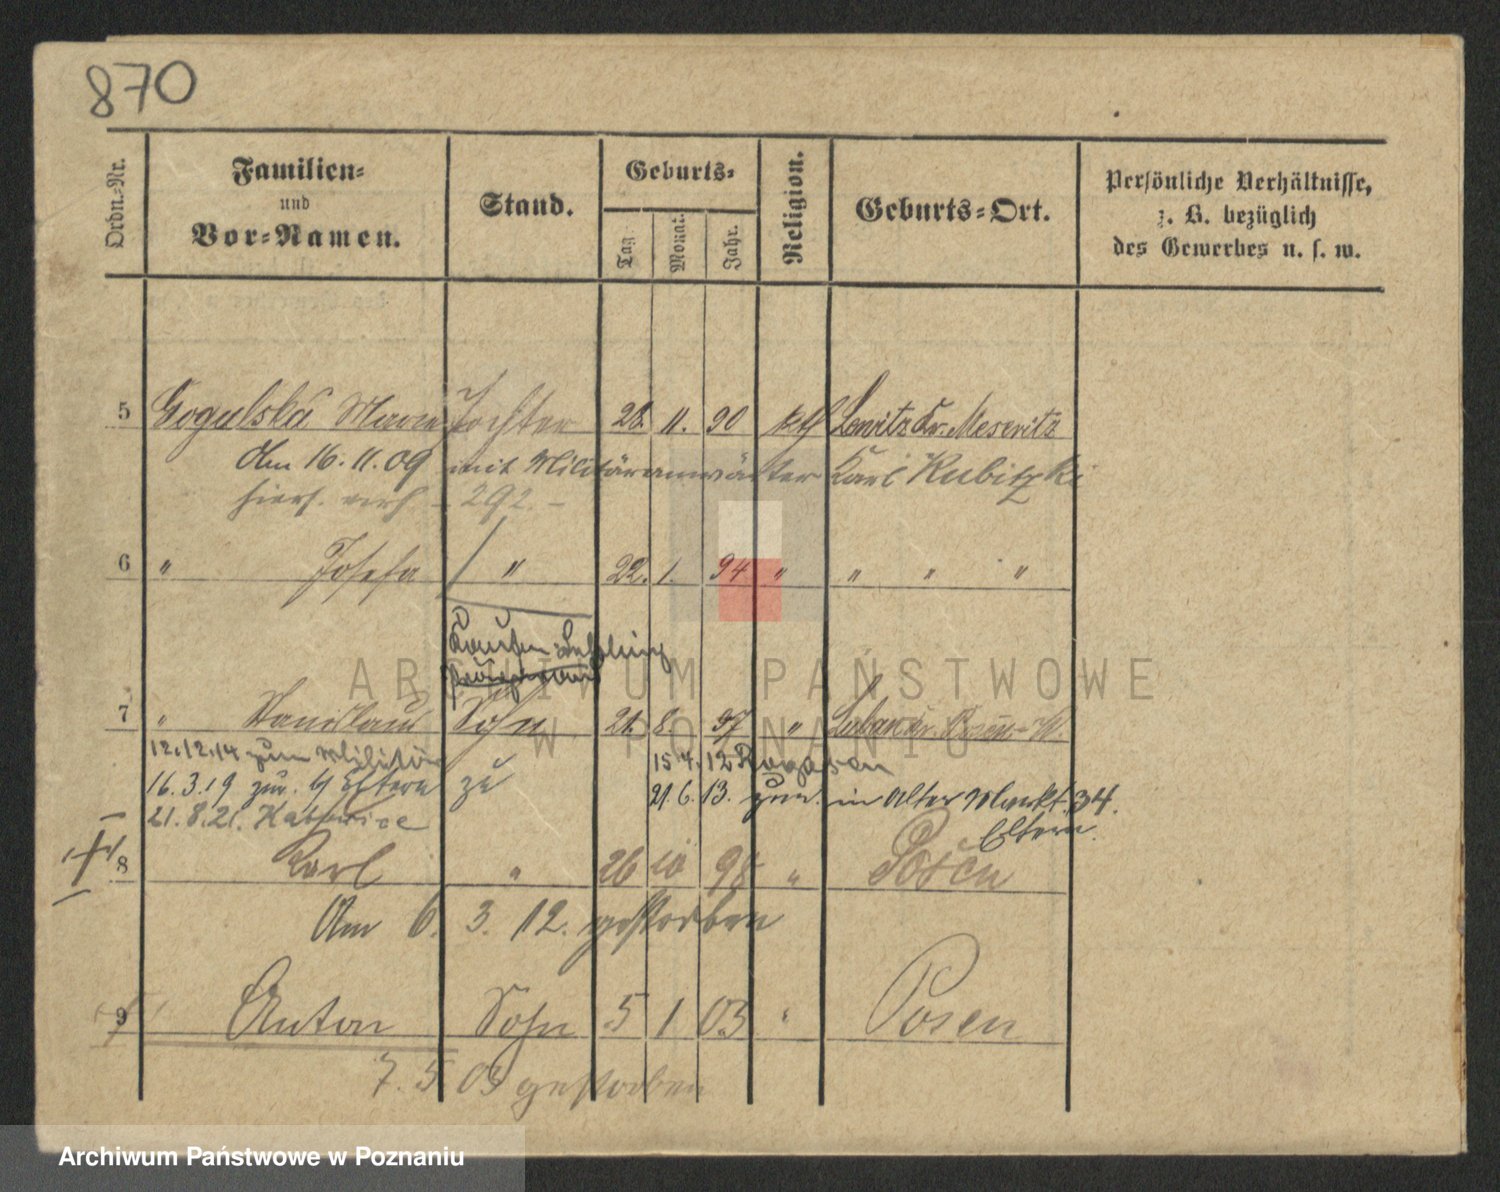 870
Ordn.-Nr.
Familien-
und
Vor-Namen.
Stand.
Geburts-
Tag
Monat.
Jahr.
Religion.
Geburts-Ort.
Persönliche Verhältnisse,
z. B. bezüglich
des Gewerbes u. s. w.
5 Gogulska Maria Tochter 28. 11. 90 kth Lewitz Kr. Meseritz
Am 16.11.09 mit Militäranwärter Karl Kubitzki
hiers. verh - 292. -
6 " Josefa / " 22. 1. 94 " " " "
7 " Stanislaus Sohn 21. 8. 97 " Posen W.
12.12.14 zum Militär 15.7.12 Rogasen
16.3.19 zur. Eltern zu 21.6.13. zur. in Alter Markt 34.
21.8.21. Katowice Eltern.
8 Karl " 26 10 98 " Posen
Am 6. 3. 12. gestorben
9 Anton Sohn 5 1 03 " Posen
7. 5 03 gestorben
ARCHIWUM PAŃSTWOWE
W POZNANIU
Archiwum Państwowe w Poznaniu